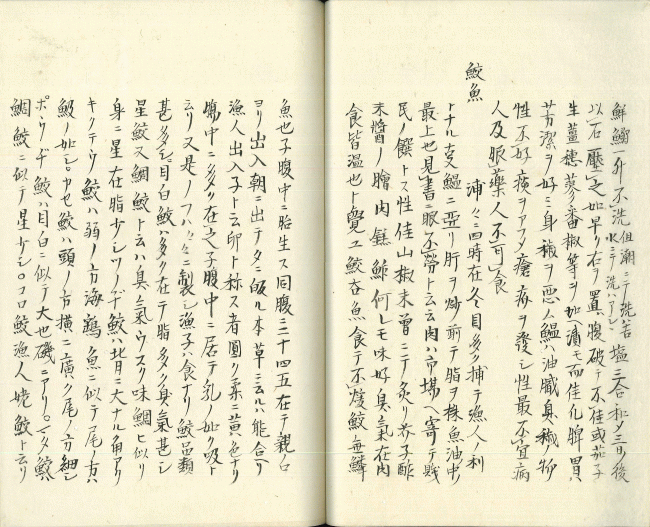 鮮鰮一升不洗但潮ニテ洗ハ苦水ニテ洗ハアレシ塩三合和メ三日後
以石壓之如早ク右ヲ置ハ腹破テ不佳或茄子
生薑穂蓼番椒等ヲ加ヘ漬モ而佳化脾胃ハ
芳潔ヲ好ミ身穢ヲ悪ム鰮ハ油膩臭穢ノ物
性不好痰ヲアツメ癈疾ヲ發シ性最不宜病
人及服藥人不可食
鮫魚
浦々ニ四時在冬目多ク捕テ漁人ノ利
トナル支鰮ニ亞リ肝ヲ炒煎テ脂ヲ株魚油中
最上也見書ニ眠不勞ト云云肉ハ市場ヘ寄テ賎
民ノ饌トス性佳山椒末曽ニテ炙リ芥子酢
未醤ノ膾肉鱶鯨何レモ味好臭氣在肉
食皆温也ト覽ユ鮫在魚食テ不煖鮫無鱗
魚也子腹中ニ胎生ス同腹ニ三十四五在テ親ノ口
ヨリ出入朝ニ出テ夕ニ皈ル本草ニ云ルハ能合ヘリ
漁人出入子ト云卵ト称ス者圓ク柔ニ黄色ナリ
腸中ニ多ク在之子腹中ニ居テ乳ノ如ク吸ト
云リ又是ノフハ〳〵ニ製シ漁子ハ食ナリ鮫品類
甚多シ目白鮫ハ多ク在テ脂多ク臭氣甚シ
星鮫又鯛鮫ト云ハ臭氣ウスク味鯛ヒ似リ
身ニ星在脂少シツノヂ鮫ハ背ニ大ナル角アリ
キクテウ鮫ハ弱ノ方海鷂魚ニ似テ尾ノ方ハ
鮫ノ如シカセ鮫ハ頭ノ方横ニ廣ク尾ノ方細シ
ポウヂ鮫ハ目白ニ似テ大也磯ニアリマタ鮫ハ
鯛鮫ニ似テ星少シコロ鮫漁人姥鮫ト云リ